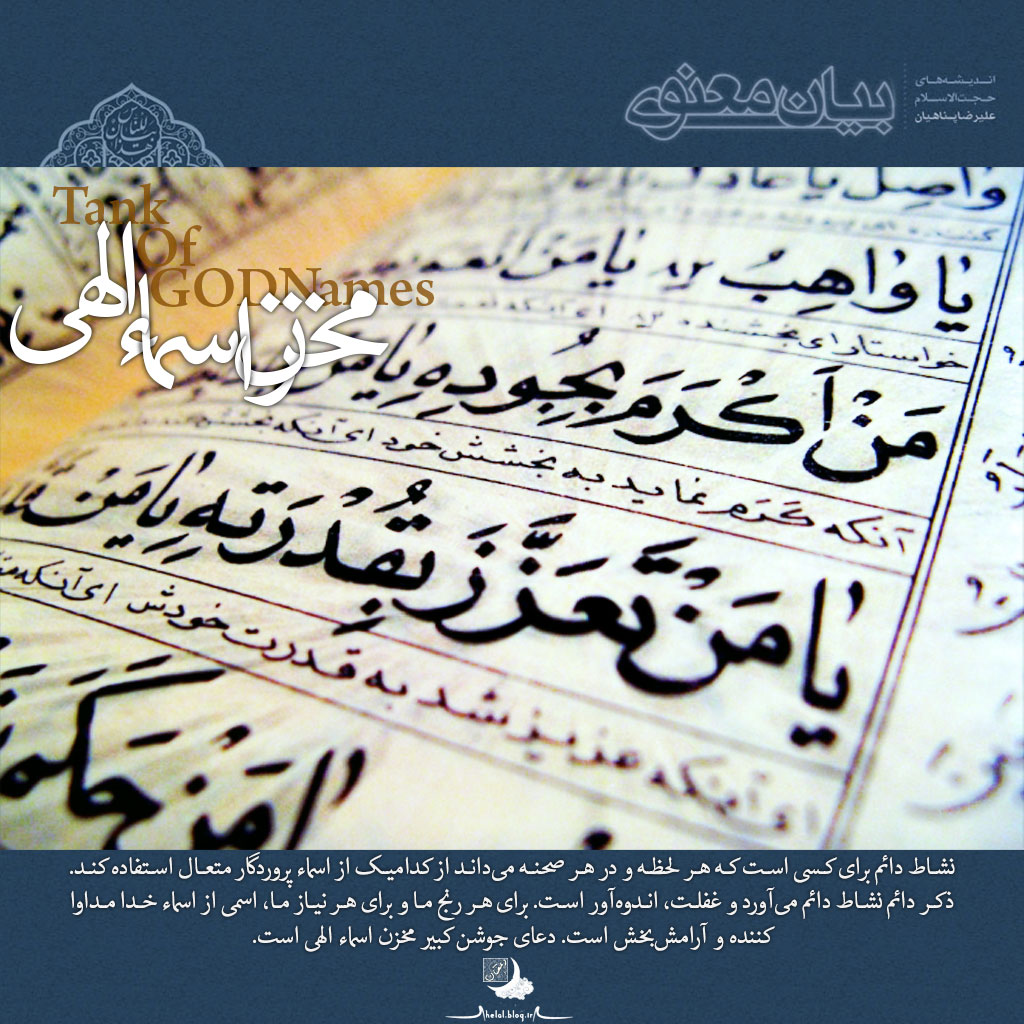 اندیشه‌های
حجت‌الاسلام
علیرضا پناهیان
بیان معنوی
هذا بیان للناس
Tank
Of
GODNames
مخزن اسماء الهی
یا واهِبُ
خواستار ای بخشنده
مَنْ اَکْرَمَ بِجُودِهِ یا مَنْ
آنکه کَرَم نماید به بخشش خود ای آنکه
یا مَنْ تَعَزَّزَ بِقُدْرَتِهِ یا مَنْ
ای آنکه عزیز شد به قدرت خودش ای آنکه
نشاط دائم برای کسی است که هر لحظه و در هر صحنه می‌داند از کدامیک از اسماء پروردگار متعال استفاده کند.
ذکر دائم نشاط دائم می‌آورد و غفلت، اندوه‌آور است. برای هر رنج ما و برای هر نیاز ما، اسمی از اسماء خدا مداوا
کننده و آرامش‌بخش است. دعای جوشن کبیر مخزن اسماء الهی است.
helal.blog.ir